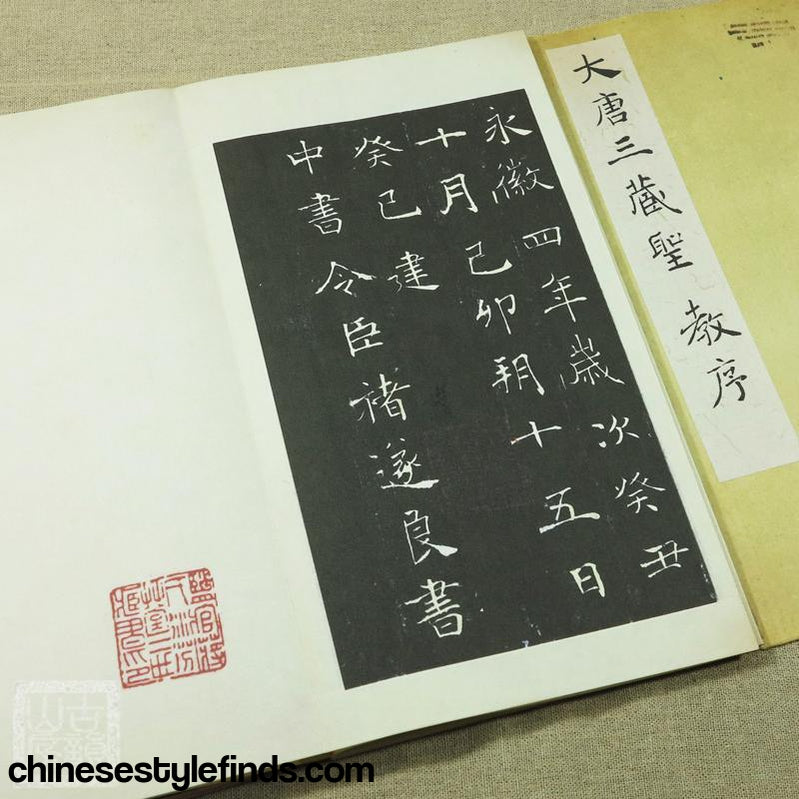 永徽四年歲次癸丑
十月己卯朔十五日
癸巳建
中書令臣褚遂良書
大唐三藏聖教序
chinesestylefinds.com